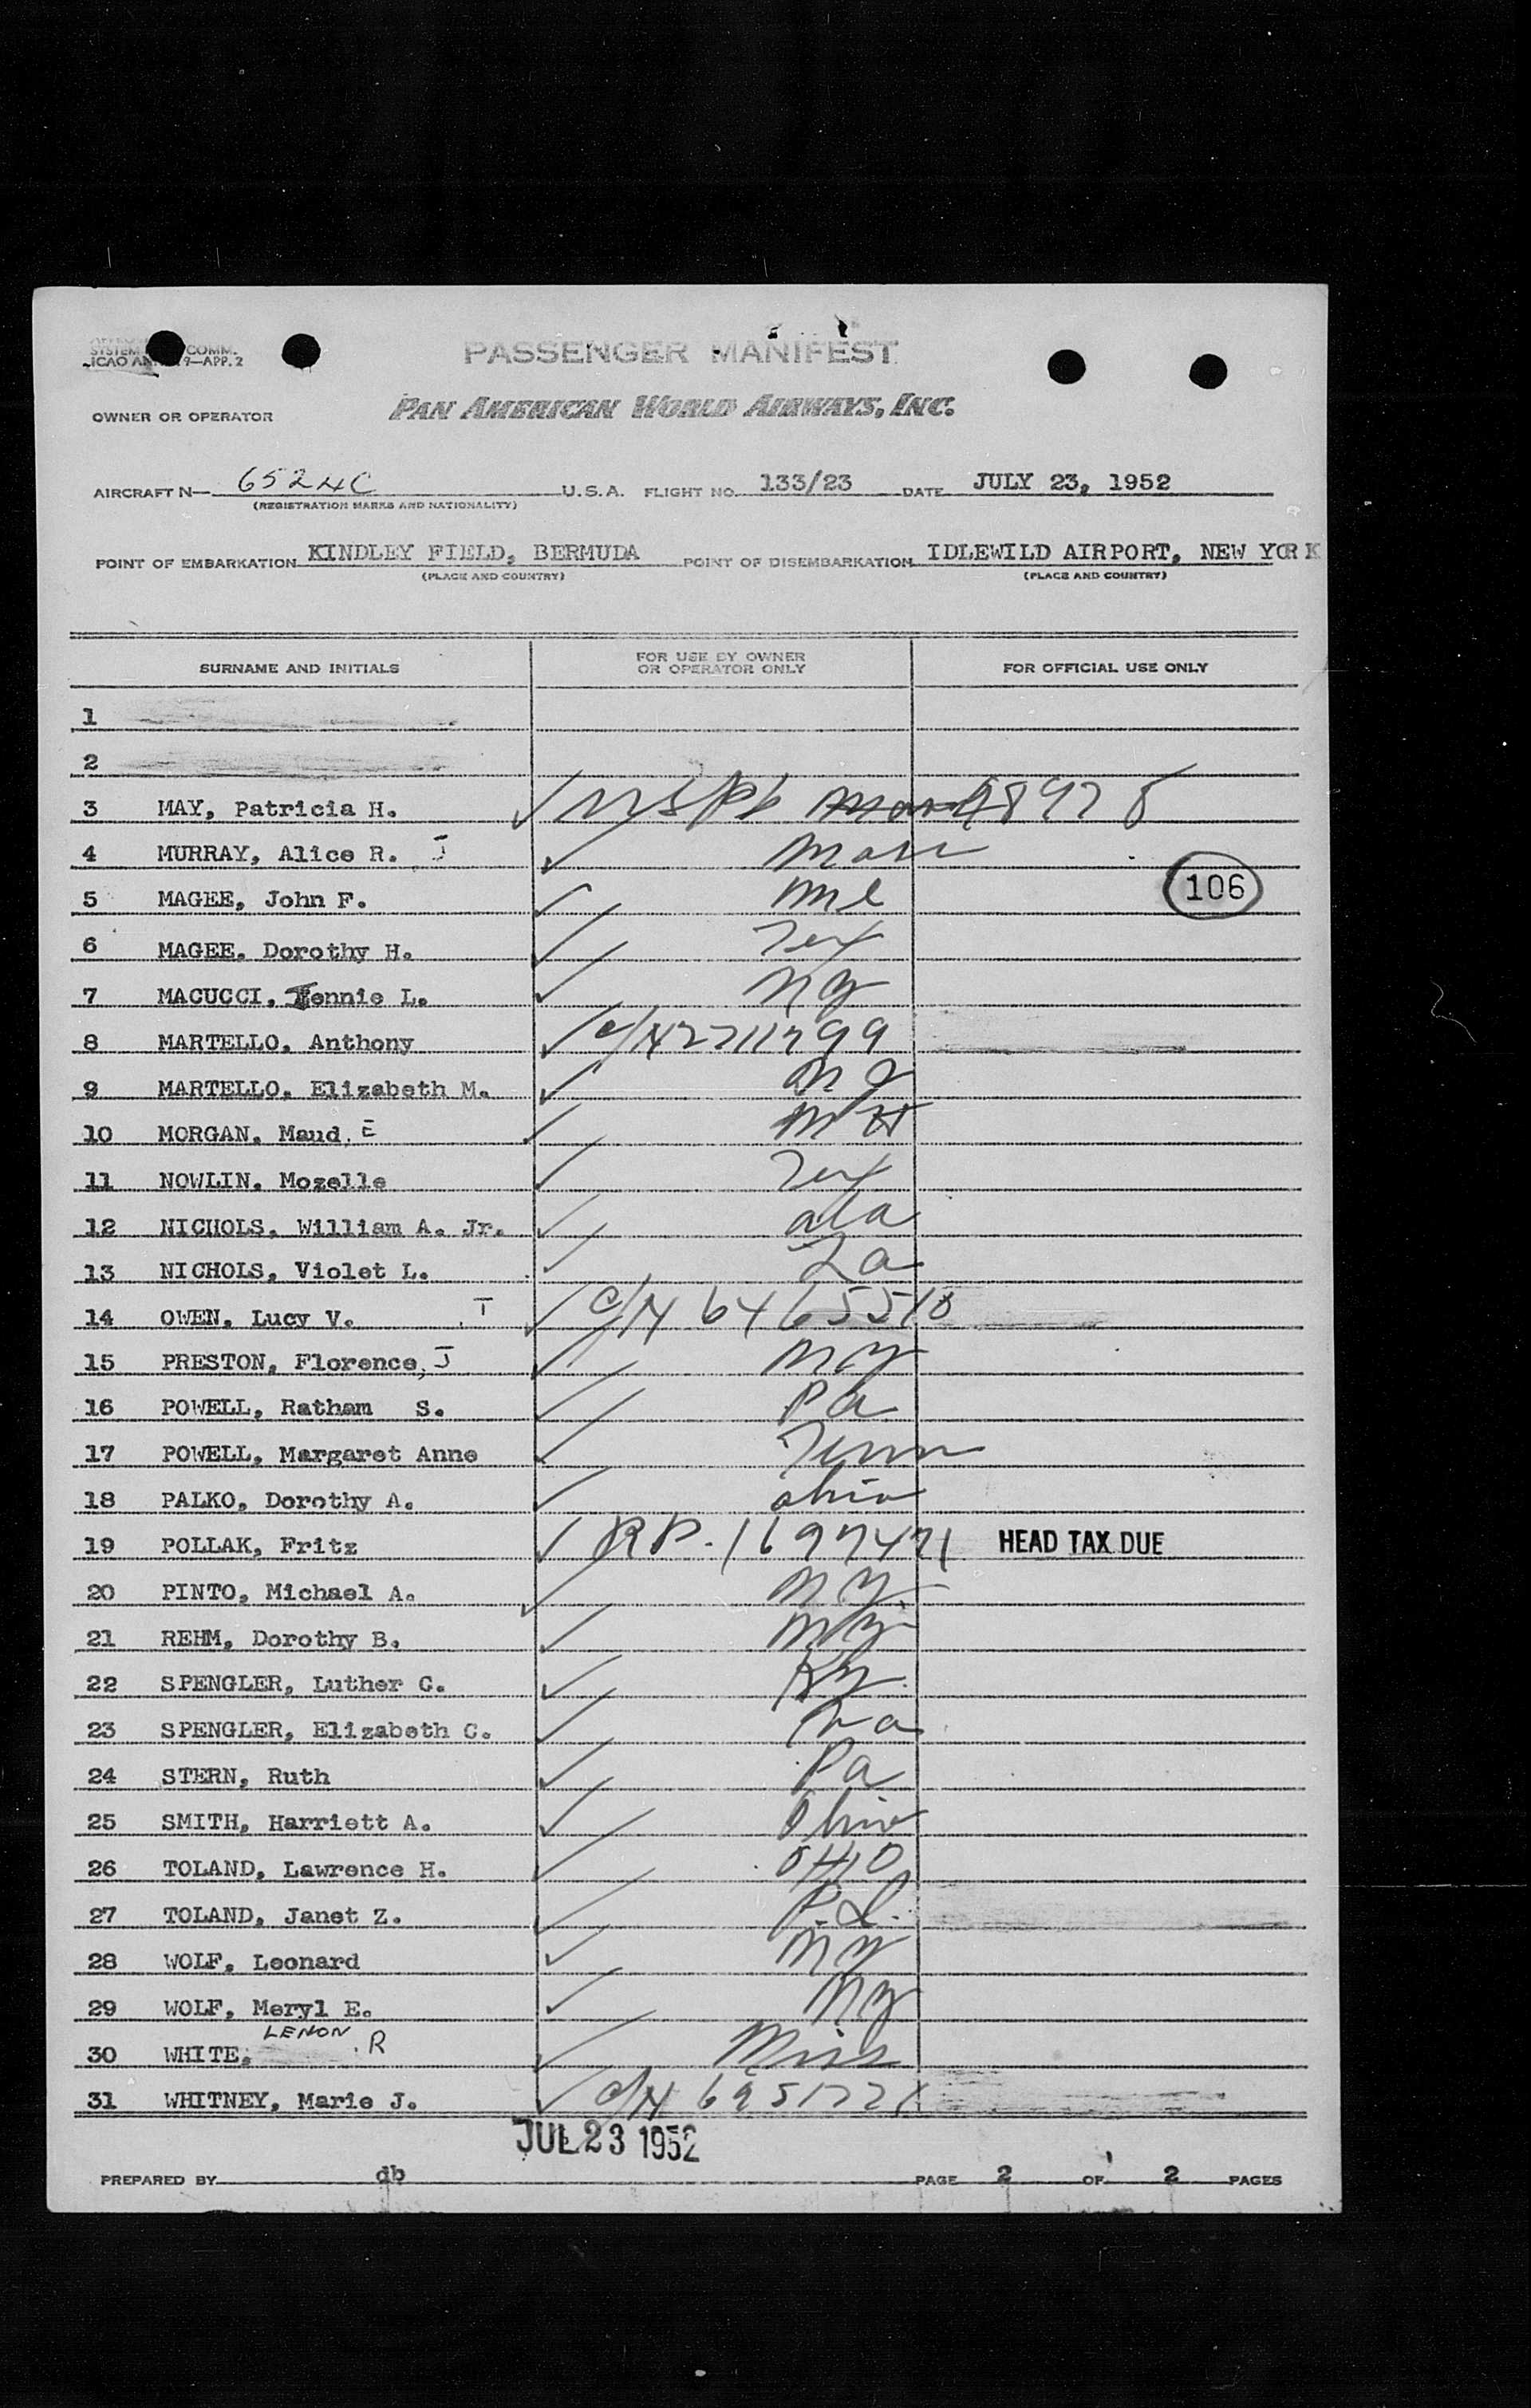 SYSTEM COMM.
ICAO ANNEX 9—APP. 2
PASSENGER MANIFEST
OWNER OR OPERATOR PAN AMERICAN WORLD AIRWAYS, INC.
AIRCRAFT N— 6524C U.S.A. FLIGHT NO. 133/23 DATE JULY 23, 1952
(REGISTRATION MARKS AND NATIONALITY)
POINT OF EMBARKATION KINDLEY FIELD, BERMUDA POINT OF DISEMBARKATION IDLEWILD AIRPORT, NEW YORK
(PLACE AND COUNTRY) (PLACE AND COUNTRY)
SURNAME AND INITIALS FOR USE BY OWNER OR OPERATOR ONLY FOR OFFICIAL USE ONLY
1
2
3 MAY, Patricia H. ✓ USPP 48978
4 MURRAY, Alice R. J ✓ Mass
106
5 MAGEE, John F. ✓
6 MAGEE, Dorothy H. ✓ Tex
7 MACUCCI, Jennie L. ✓ NY
8 MARTELLO, Anthony ✓ C/N 2711799
9 MARTELLO, Elizabeth M. ✓ NJ
10 MORGAN, Maud, E ✓ NH
11 NOWLIN, Mozelle ✓ Tex
12 NICHOLS, William A. Jr. ✓ Ala
13 NICHOLS, Violet L. ✓ La
14 OWEN, Lucy V. T ✓ C/N 6465510
15 PRESTON, Florence, J ✓ NY
16 POWELL, Ratham S. ✓ Pa
17 POWELL, Margaret Anne ✓ Tenn
18 PALKO, Dorothy A. ✓ Ohio
19 POLLAK, Fritz ✓ RP. 1697471 HEAD TAX DUE
20 PINTO, Michael A. ✓ NY
21 REHM, Dorothy B. ✓ NY
22 SPENGLER, Luther C. ✓ Ky
23 SPENGLER, Elizabeth C. ✓
24 STERN, Ruth ✓ Pa
25 SMITH, Harriett A. ✓ Ohio
26 TOLAND, Lawrence H. ✓ OHIO
27 TOLAND, Janet Z. ✓
28 WOLF, Leonard ✓ NY
29 WOLF, Meryl E. ✓ NY
30 WHITE, LENON R ✓ Miss
31 WHITNEY, Marie J. ✓ C/N 6951771
JUL 23 1952
PREPARED BY db PAGE 2 OF 2 PAGES